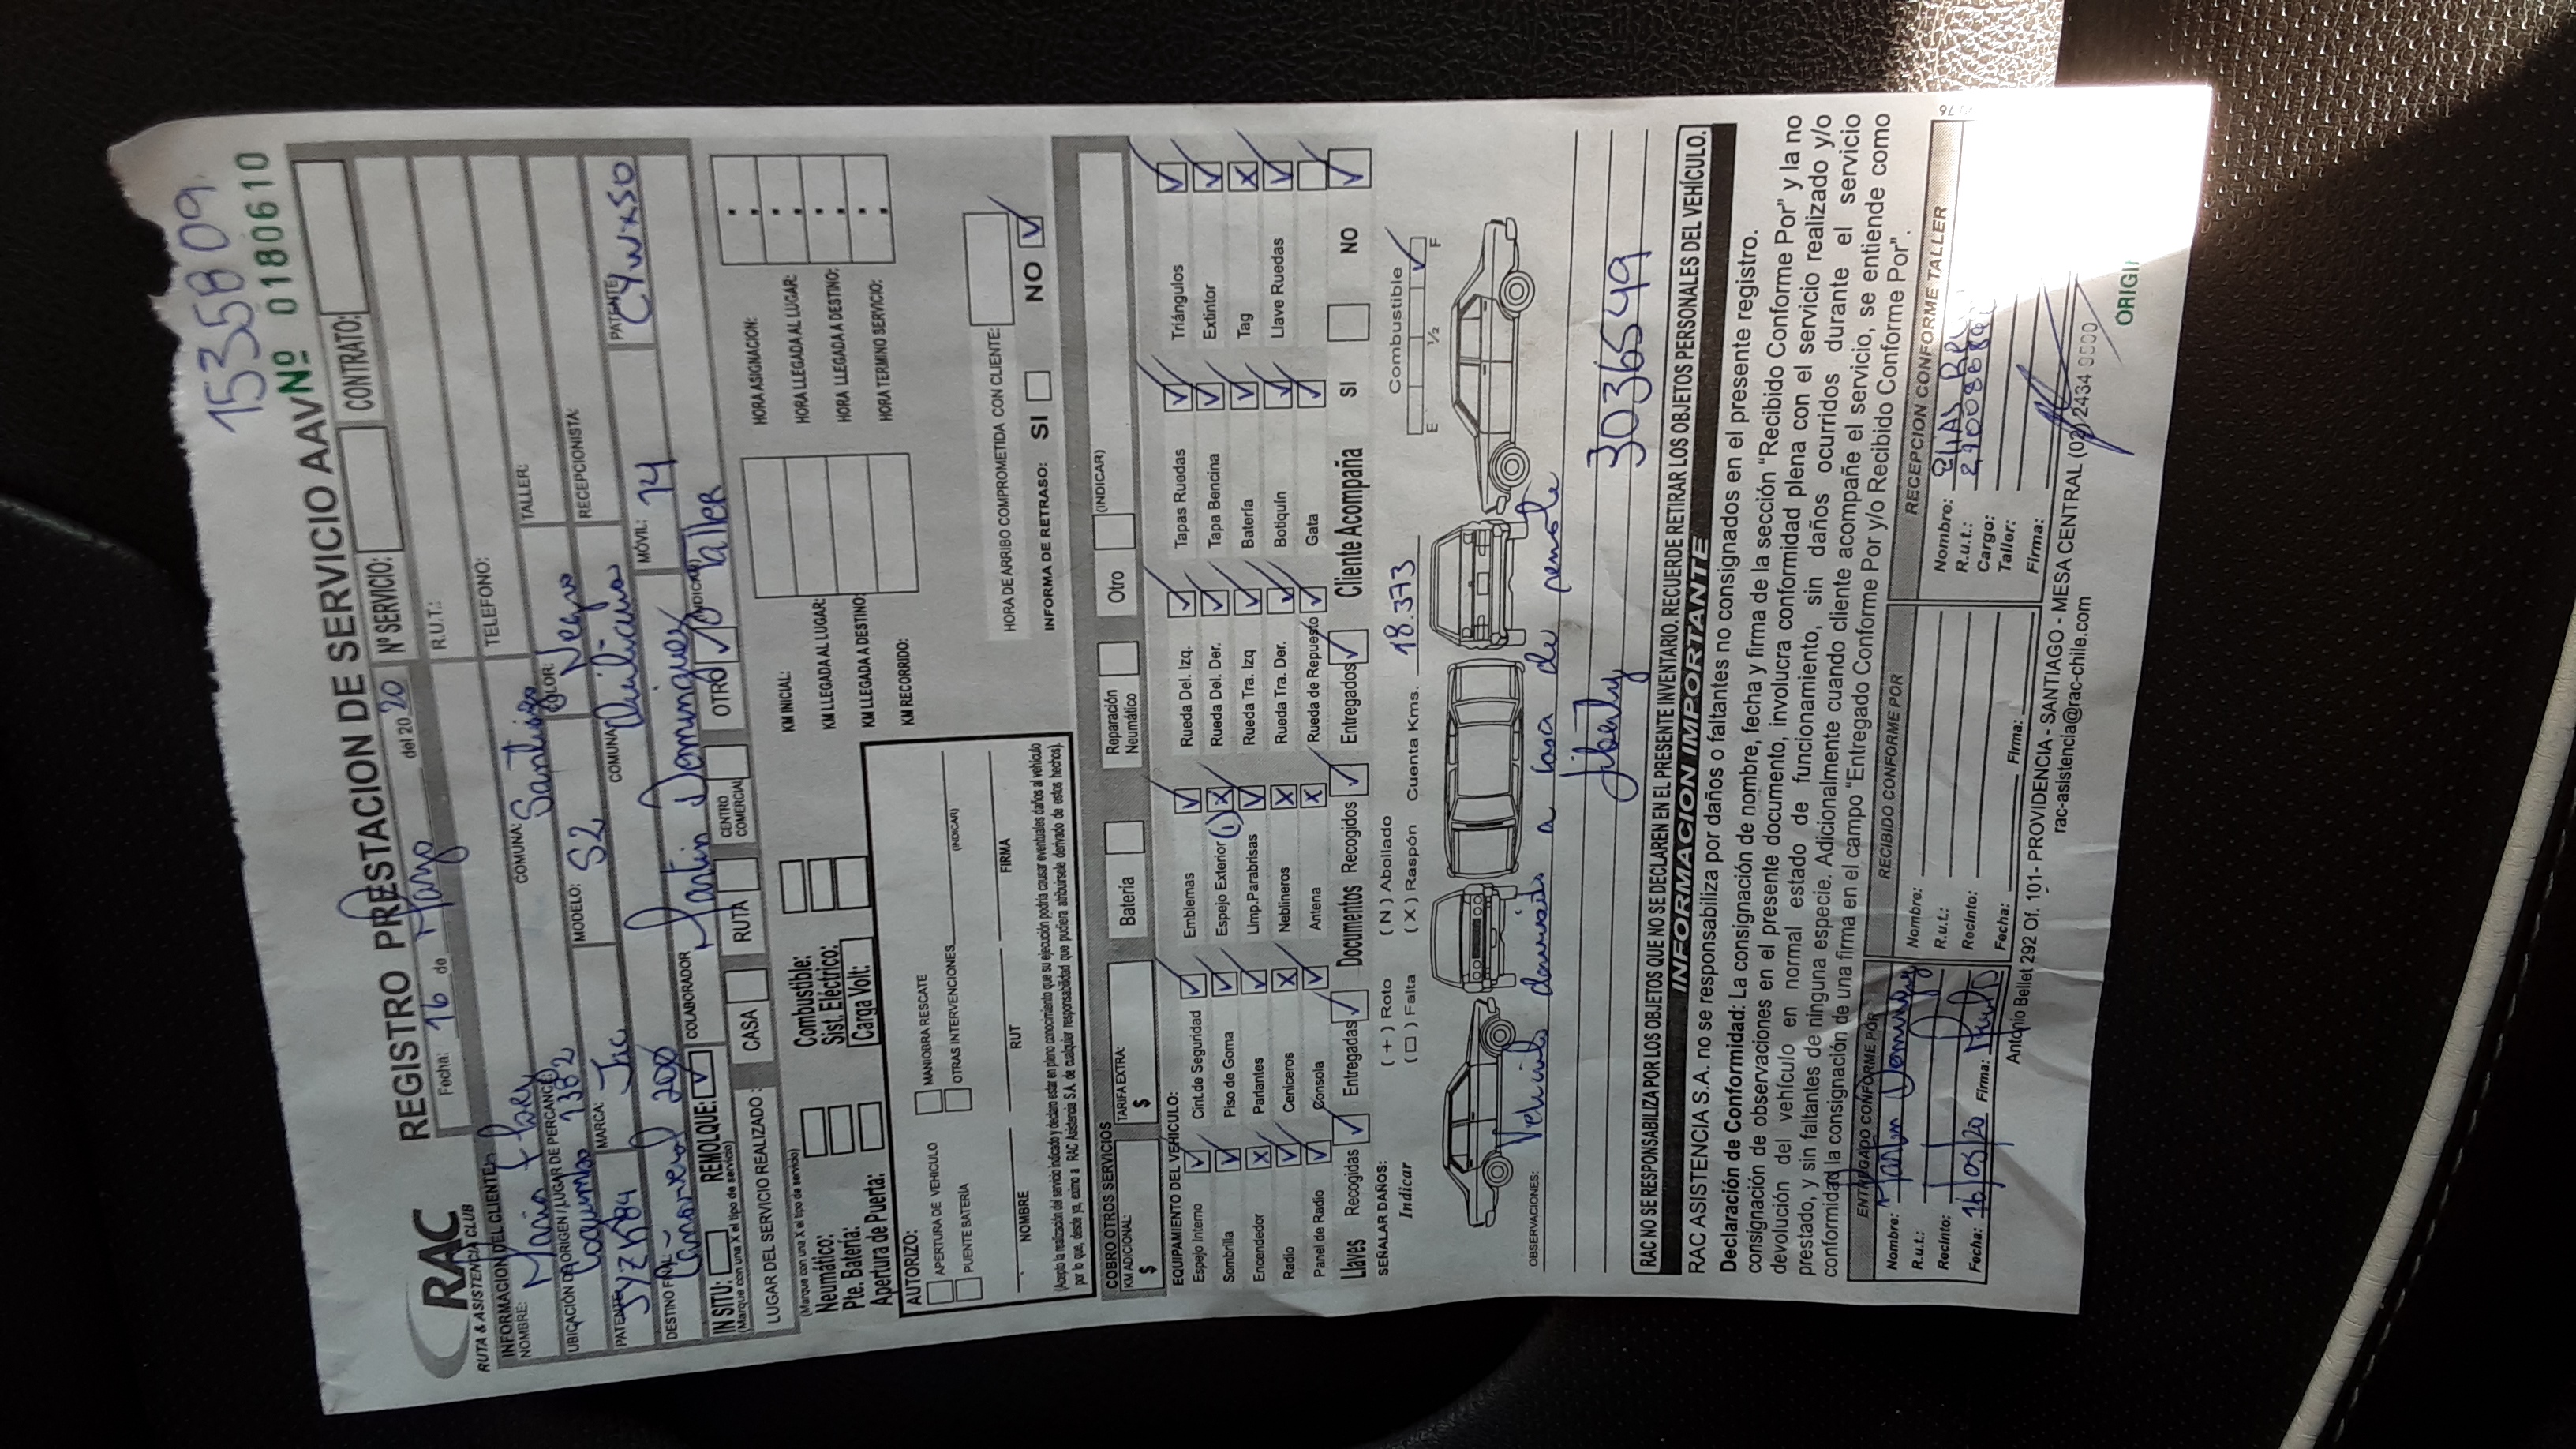 1535809
RAC
RUTA & ASISTENCIA CLUB
REGISTRO PRESTACION DE SERVICIO AAV Nº 0180610
Fecha: 16 de Mayo del 2020 Nº SERVICIO: CONTRATO:
INFORMACION DEL CLIENTE
NOMBRE: Mario R.U.T.:
UBICACION DE ORIGEN / LUGAR DE PERCANCE: Coquimbo 1382 COMUNA: Santiago TELEFONO:
PATENTE: JYZK84 MARCA: Jac MODELO: S2 COLOR: Negro TALLER:
DESTINO FINAL: Cañaveral 200 COMUNA: Quilicura RECEPCIONISTA:
COLABORADOR Martin Dominguez MÓVIL: 14 PATENTE: CYWX50
IN SITU: REMOLQUE: ✓
(Marque con una X el tipo de servicio)
LUGAR DEL SERVICIO REALIZADO: CASA RUTA CENTRO COMERCIAL OTRO ✓ (INDICAR) Taller
(Marque con una X el tipo de servicio)
Neumático: Combustible:
Pte. Batería: Sist. Eléctrico:
Apertura de Puerta: Carga Volt:
KM INICIAL: HORA ASIGNACION:
KM LLEGADA AL LUGAR: HORA LLEGADA AL LUGAR:
KM LLEGADA A DESTINO: HORA LLEGADA A DESTINO:
KM RECORRIDO: HORA TERMINO SERVICIO:
AUTORIZO:
APERTURA DE VEHICULO MANIOBRA RESCATE
PUENTE BATERÍA OTRAS INTERVENCIONES (INDICAR)
NOMBRE RUT FIRMA
(Acepto la realización del servicio indicado y declaro estar en pleno conocimiento que su ejecución podría causar eventuales daños al vehículo
por lo que, desde ya, eximo a RAC Asistencia S.A. de cualquier responsabilidad que pudiera atribuírsele derivado de estos hechos).
HORA DE ARRIBO COMPROMETIDA CON CLIENTE:
INFORMA DE RETRASO: SI NO ✓
COBRO OTROS SERVICIOS
KM ADICIONAL: $ TARIFA EXTRA: $ Batería Reparación Neumático Otro (INDICAR)
EQUIPAMIENTO DEL VEHÍCULO:
Espejo Interno ✓ Cint.de Seguridad ✓ Emblemas ✓ Rueda Del. Izq. ✓ Tapas Ruedas ✓ Triángulos ✓
Sombrilla ✓ Piso de Goma ✓ Espejo Exterior (1) X Rueda Del. Der. ✓ Tapa Bencina ✓ Extintor ✓
Encendedor X Parlantes ✓ Limp.Parabrisas ✓ Rueda Tra. Izq ✓ Batería ✓ Tag X
Radio ✓ Ceniceros X Neblineros X Rueda Tra. Der. ✓ Botiquín ✓ Llave Ruedas ✓
Panel de Radio ✓ Consola ✓ Antena X Rueda de Repuesto ✓ Gata ✓
Llaves Recogidas ✓ Entregadas ✓ Documentos Recogidos ✓ Entregados ✓ Cliente Acompaña SI NO ✓
SEÑALAR DAÑOS: ( + ) Roto ( N ) Abollado
Indicar ( □ ) Falta ( X ) Raspón Cuenta Kms. 18.373 Combustible E ½ F
OBSERVACIONES: Vehiculo a casa de remate
Liberty 3036549
RAC NO SE RESPONSABILIZA POR LOS OBJETOS QUE NO SE DECLAREN EN EL PRESENTE INVENTARIO. RECUERDE RETIRAR LOS OBJETOS PERSONALES DEL VEHÍCULO.
INFORMACION IMPORTANTE
RAC ASISTENCIA S.A. no se responsabiliza por daños o faltantes no consignados en el presente registro.
Declaración de Conformidad: La consignación de nombre, fecha y firma de la sección "Recibido Conforme Por" y la no
consignación de observaciones en el presente documento, involucra conformidad plena con el servicio realizado y/o
devolución del vehículo en normal estado de funcionamiento, sin daños ocurridos durante el servicio
prestado, y sin faltantes de ninguna especie. Adicionalmente cuando cliente acompañe el servicio, se entiende como
conformidad la consignación de una firma en el campo "Entregado Conforme Por y/o Recibido Conforme Por".
ENTREGADO CONFORME POR RECIBIDO CONFORME POR RECEPCION CONFORME TALLER
Nombre: Martin Dominguez Nombre: Nombre: Elias
R.u.t.: R.u.t.: R.u.t.:
Recinto: Recinto: Cargo:
Fecha: 16/05/20 Firma: Fecha: Firma: Taller:
Firma:
Antonio Bellet 292 Of. 101- PROVIDENCIA - SANTIAGO - MESA CENTRAL (02) 2434 9000
rac-asistencia@rac-chile.com